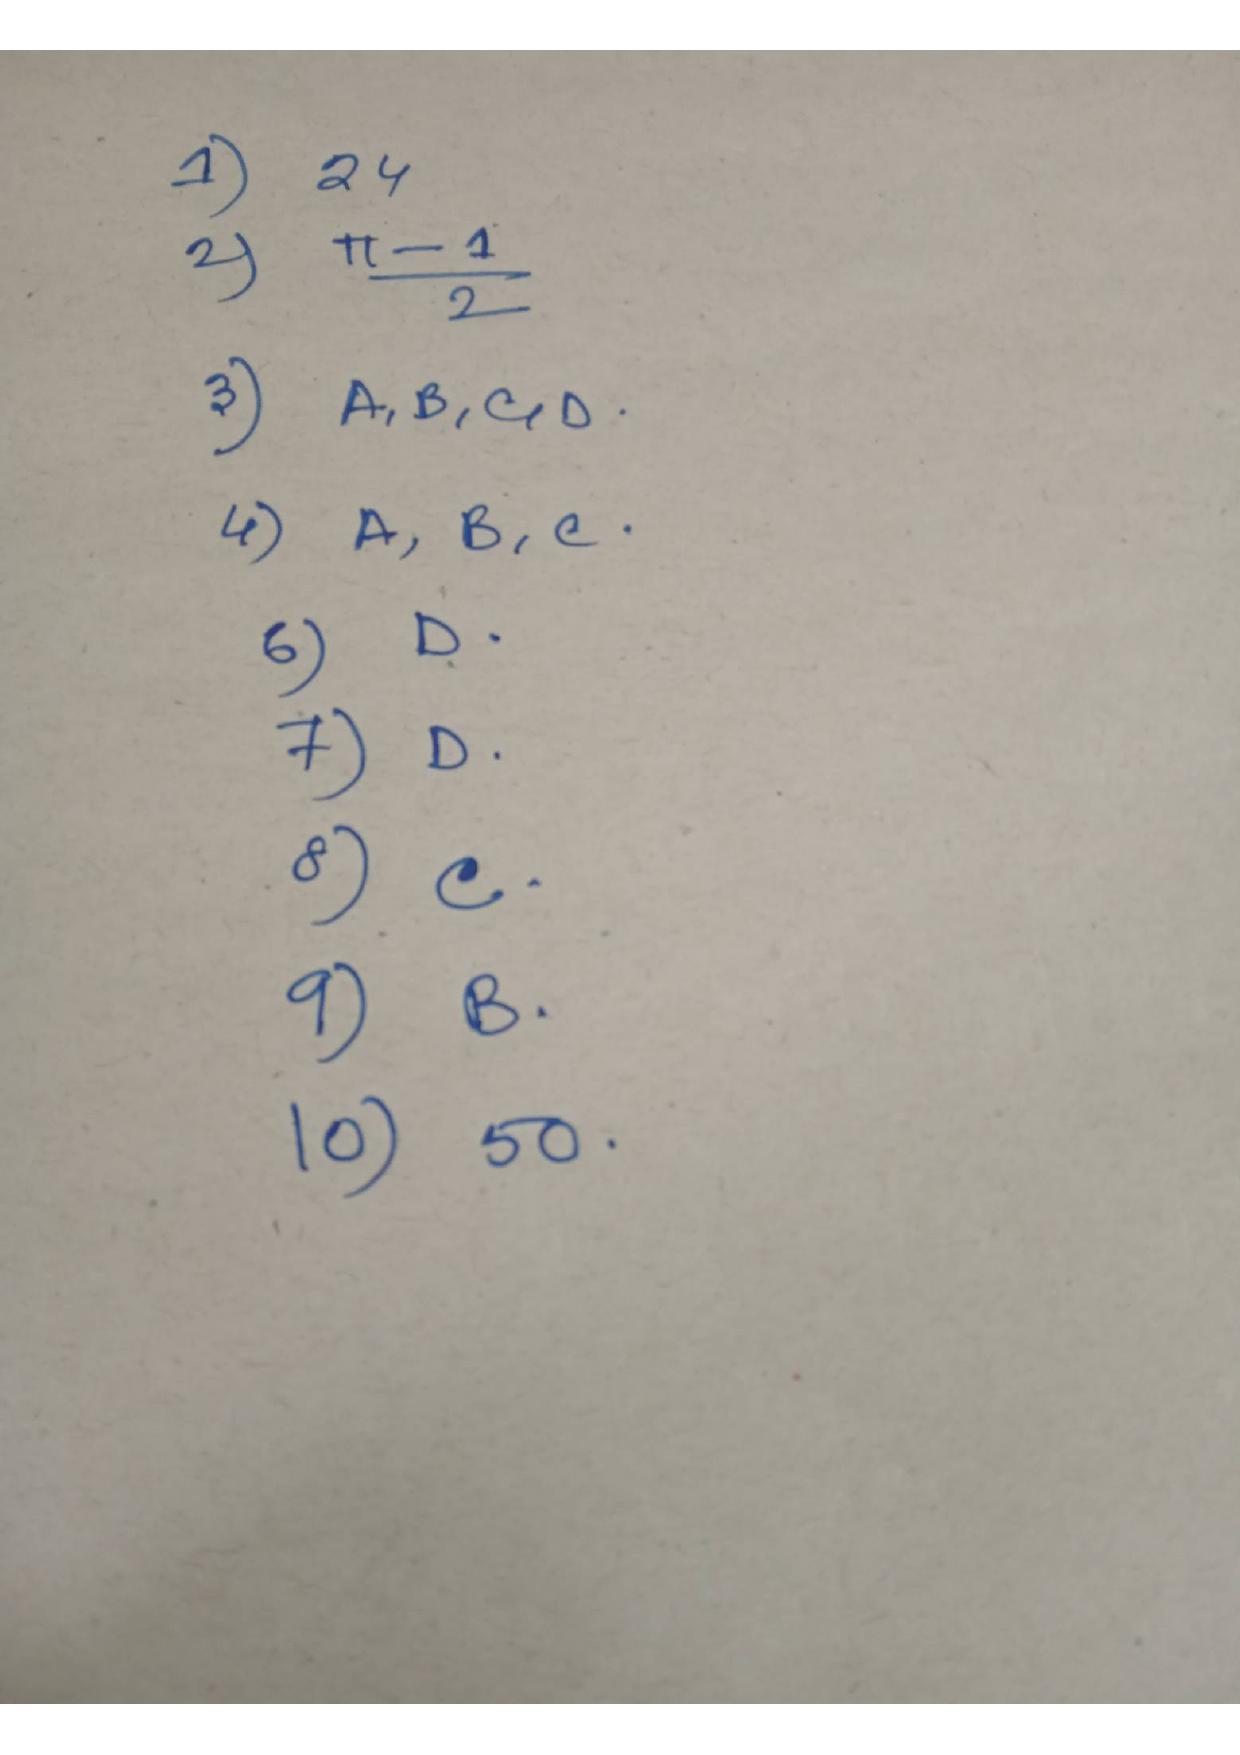 1) 24
2) π - 1
2
3) A, B, C, D.
4) A, B, C.
6) D.
7) D.
8) C.
9) B.
10) 50.